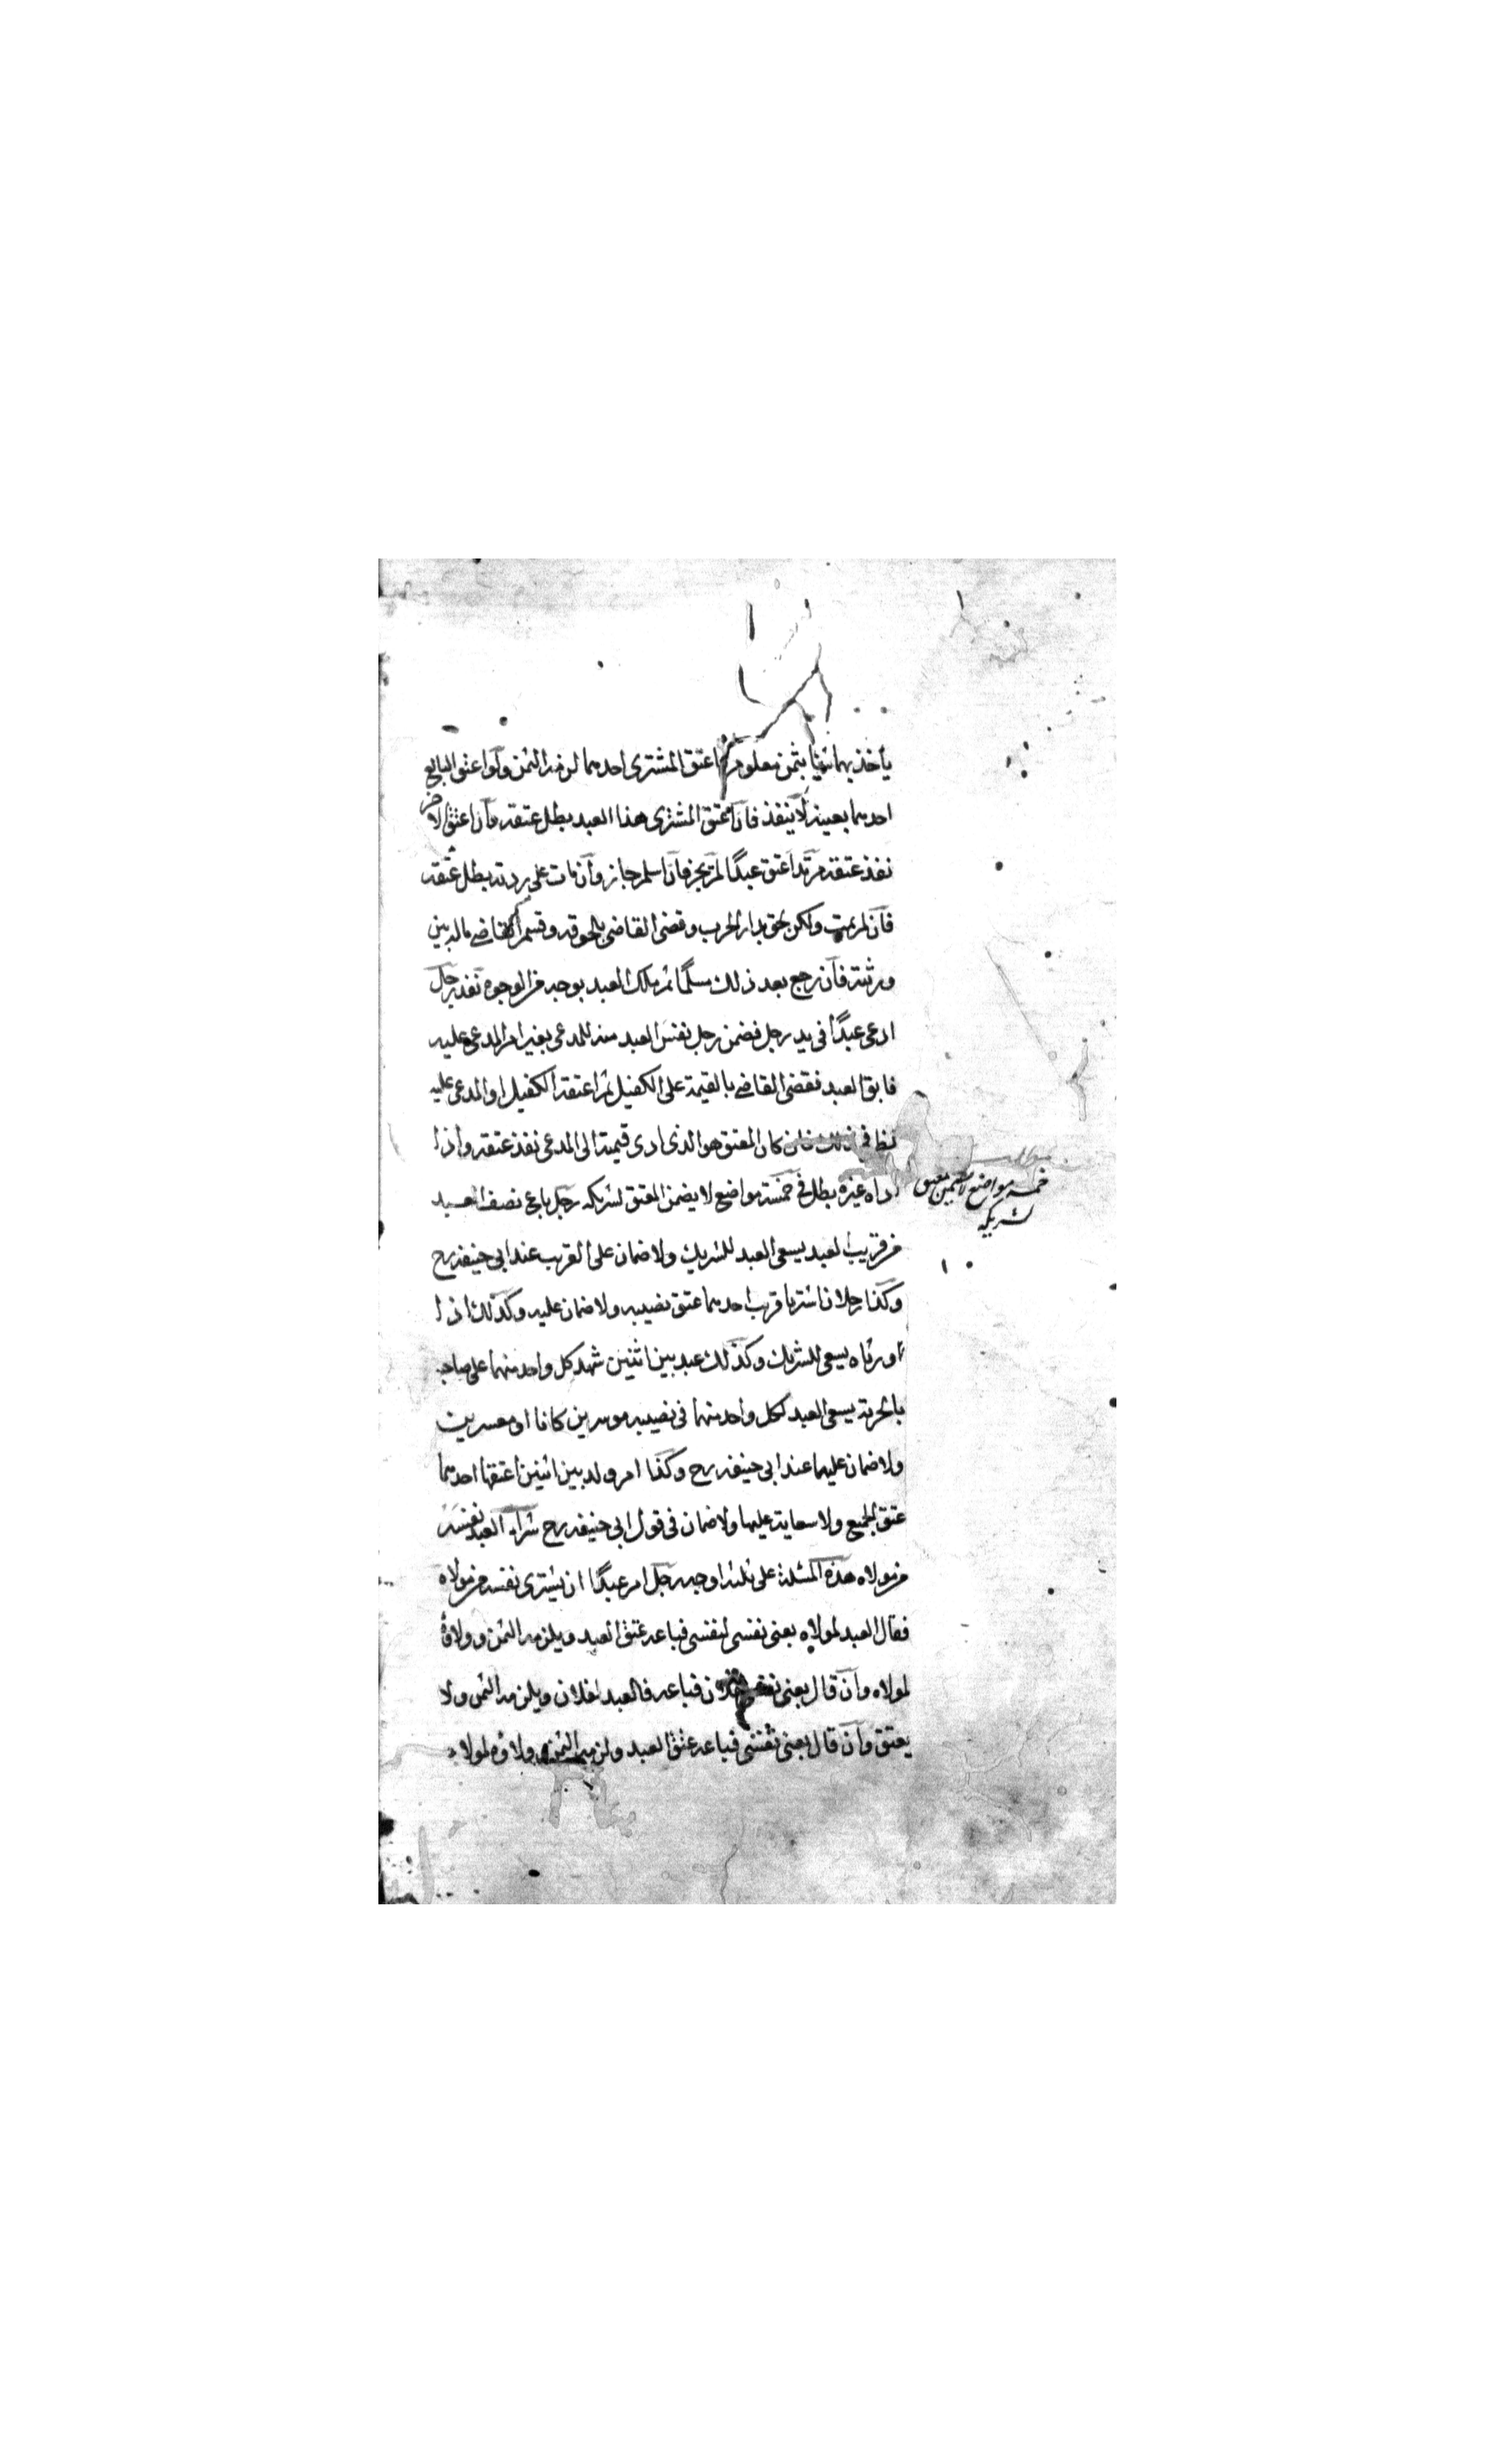 يأخذ بهما شيئا بثمن معلوم اعتق المشترى احدهما لزمه الثمن ولو اعتق البايع
احدهما بعينه لا ينفذ فان اعتق المشترى هذا العبد بطل عتقه وان اعتق الاخر
نفذ عتقه مرتد اعتق عبدًا لم يجز فان اسلم جاز وان مات على ردته بطل عتقه
فان لم يمت ولكن لحق بدار الحرب وقضى القاضى بلحوقه وقسم القاضى ماله بين
ورثته فان رجع بعد ذلك مسلمًا ثم ملك العبد بوجه من الوجوه نفذ رجل
ادعى عبدًا فى يد رجل فضمن رجل نفس العبد منه للمدعى بغير امر المدعى عليه
فابق العبد فقضى القاضى بالقيمة على الكفيل ثم اعتقه الكفيل او المدعى عليه
نظر فى ذلك فان كان المعتق هو الذى ادى قيمته الى المدعى نفذ عتقه واذا
اداه غيره بطل فى خمسة مواضع لا يضمن المعتق لشريكه رجل باع نصف العبد
من قريب العبد يسعى العبد للشريك ولا ضمان على القريب عند ابى حنيفه رح
وكذا رجلان اشتريا قريب احدهما عتق نصيبه ولا ضمان عليه وكذلك اذا
اورثاه يسعى للشريك وكذلك عبد بين اثنين شهد كل واحد منهما على صاحبه
بالحرية يسعى العبد لكل واحد منهما فى نصيبه موسرين كانا او معسرين
ولا ضمان عليهما عند ابى حنيفه رح وكذا ام ولد بين اثنين اعتقها احدهما
عتق الجميع ولا سعاية عليها ولا ضمان فى قول ابى حنيفه رح شراء العبد نفسه
من مولاه هذه المسئلة على ثلثة اوجه رجل امر عبدًا ان يشترى نفسه من مولاه
فقال العبد لمولاه بعنى نفسى لنفسى فباعه عتق العبد ويلزمه الثمن وولاؤه
لمولاه وان قال بعنى نفسى لفلان فباعه فالعبد لفلان ويلزمه الثمن ولا
يعتق وان قال بعنى نفسى فباعه عتق العبد ولزمه الثمن وولاؤه لمولاه
مطلب
خمسه مواضع لا يضمن معتق
لشريكه